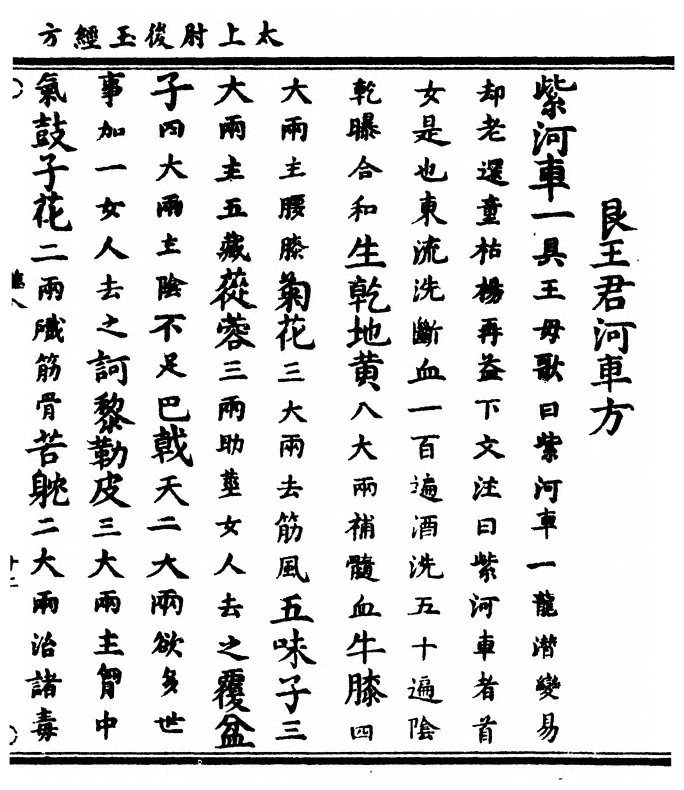 太上肘後玉經方
艮王君河車方
紫河車一具王母歌曰紫河車一龍潛變易
却老還童枯楊再益下文注曰紫河車者首
女是也東流洗斷血一百遍酒洗五十遍陰
乾曝合和生乾地黃八大兩補髓血牛膝四
大兩主腰膝菊花三大兩去筋風五味子三
大兩主五藏蓯蓉三兩助莖女人去之覆盆
子四大兩主陰不足巴戟天二大兩欲多世
事加一女人去之訶黎勒皮三大兩主胷中
氣鼓子花二兩殲筋骨苦躭二大兩治諸毒
十二